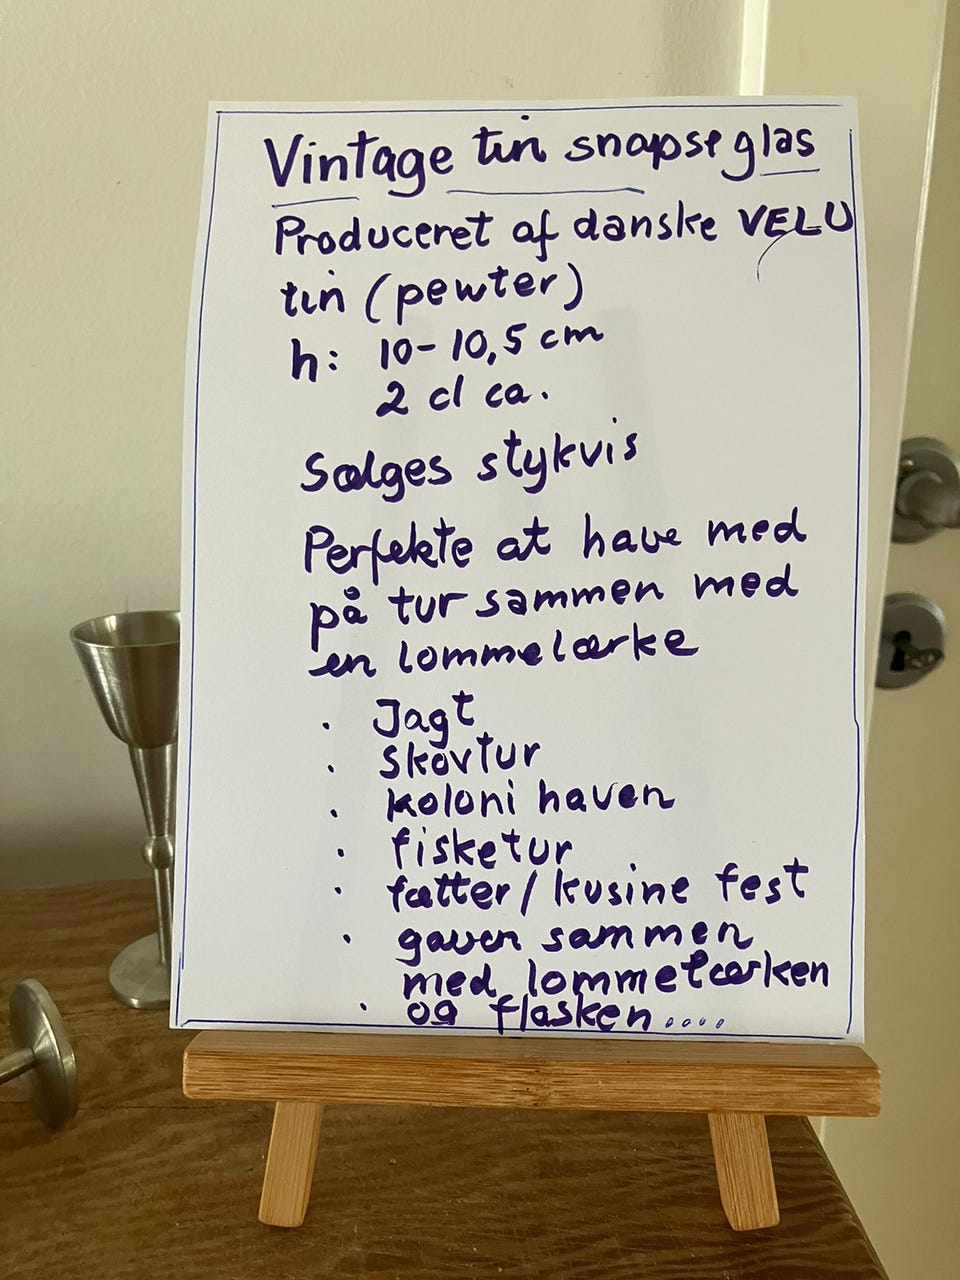 Vintage tin snapseglas
Produceret af danske VELU
tin (pewter)
h: 10-10,5 cm
2 cl ca.
Sælges stykvis
Perfekte at have med
på tur sammen med
en lommelærke
· Jagt
· Skovtur
· koloni haven
· fisketur
· fætter/kusine fest
· gaven sammen
med lommelærken
· og flasken....